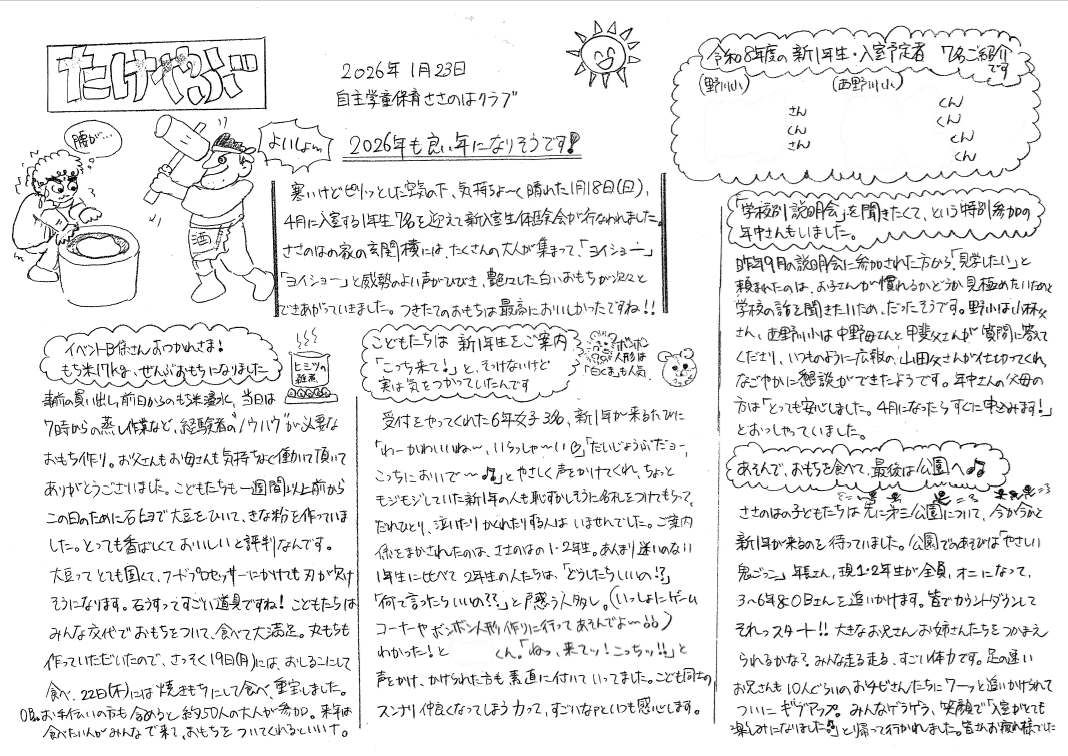 たけやぶ
2026年 1月23日
自主学童保育ささのはクラブ
腰が…
よいしょ〜
酒
2026年も良い年になりそうです!
寒いけどピリッとした空気の下、気持ちよ〜く晴れた1月18日(日)、
4月に入室する1年生7名を迎えて新入室生体験会が行なわれました。
ささのはの家の玄関横には、たくさんの大人が集まって、「ヨイショー」
「ヨイショー」と威勢のよい声がひびき、艶々した白いおもちが次々と
できあがっていました。つきたてのおもちは最高においしかったですね!!
イベント日係さんおつかれさま!
もち米17kg、ぜんぶおもちになりました
ヒミツの
事前の買い出し、前日からのもち米浸水、当日は
7時からの蒸し作業など、経験者の"ノウハウ"が必要な
おもち作り。お父さんもお母さんも気持ちよく働いて頂いて
ありがとうございました。こどもたちも一週間以上前から
この日のために石臼で大豆をひいて、きな粉を作っていま
した。とっても香ばしくておいしいと評判なんです。
大豆ってとても固くて、フードプロセッサーにかけても刃が欠け
そうになります。石うすってすごい道具ですね!こどもたちは
みんな交代でおもちをついて、食べて大満足。丸もちも
作っていただいたので、さっそく19日(月)には、おしるこにして
食べ、22日(木)には焼きもちにして食べ、重宝しました。
OB、お手伝いの方も含めると約50人の大人が参加。来年は
食べたい人がみんなで来て、おもちをついてくれるといいナ。
こどもたちは 新1年生をご案内
「こっち来て!」と、そっけないけど
実は気をつかってたんです
ボンボン
人形は
「白くま」も人気
受付をやってくれた6年女子3名、新1年が来るたびに
「わーかわいいね〜、いらっしゃ〜い♡」「だいじょうぶだヨー、
こっちにおいで〜♫」とやさしく声をかけてくれ、ちょっと
モジモジしていた新1年の人も恥ずかしそうに名札をつけてもらって、
だれひとり、泣いたりかくれたりする人はいませんでした。ご案内
係をまかされたのは、ささのはの1・2年生。あんまり迷いのない
1年生に比べて2年生の人たちは、「どうしたらいいの!?」
「何て言ったらいいの??」と戸惑う人多し。(いっしょにゲーム
コーナーやボンボン人形作りに行ってあそんでよ〜)
わかった!と くん。「ねっ、来てッ!こっちッ!!」と
声をかけ、かけられた方も素直に付いて いってました。こども同士の
スンナリ仲良くなってしまう力って、すごいなァといつも感心します。
令和8年度の新1年生・入室予定者 7名ご紹介
です
(野川小) (西野川小)
さん くん
くん くん
さん くん
くん
「学校別説明会」を聞きたくて、という特別参加の
年中さんもいました。
昨年9月の説明会に参加された方から、「見学したい」と
頼まれたのは、お子さんが慣れるかどうか見極めたいためと
学校の話を聞きたいため、だったそうです。野川小は小林父
さん、西野川小は中野母さんと甲斐父さんが、質問に答えて
くださり、いつものように広報の、山田父さんが仕切ってくれ、
なごやかに懇談ができたようです。年中さんの父母の
方は「とっても安心しました。4月になったらすぐに申込みます!」
とおっしゃっていました。
あそんで、おもちを食べて、最後は公園へ♫
ささのはの子どもたちは先に第三公園について、今か今かと
新1年が来るのを待っていました。公園でのあそびは「やさしい
鬼ごっこ」年長さん、現1・2年生が全員、オニになって、
3〜6年&OBさんを追いかけます。皆でカウントダウンして
それっスタート!!大きなお兄さんお姉さんたちをつかまえ
られるかな?みんな走る走る、すごい体力です。足の速い
お兄さんも10人ぐらいのおチビさんたちにワーッと追いかけられて
ついにギブアップ。みんなゲラゲラ、笑顔で「入室がとても
楽しみになりました♪」と帰って行かれました。皆さんお疲れ様でした